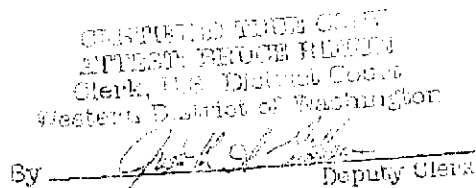 CERTIFIED TRUE COPY
ATTEST: BRUCE RIFKIN
Clerk, U.S. District Court
Western District of Washington
By
Deputy Clerk